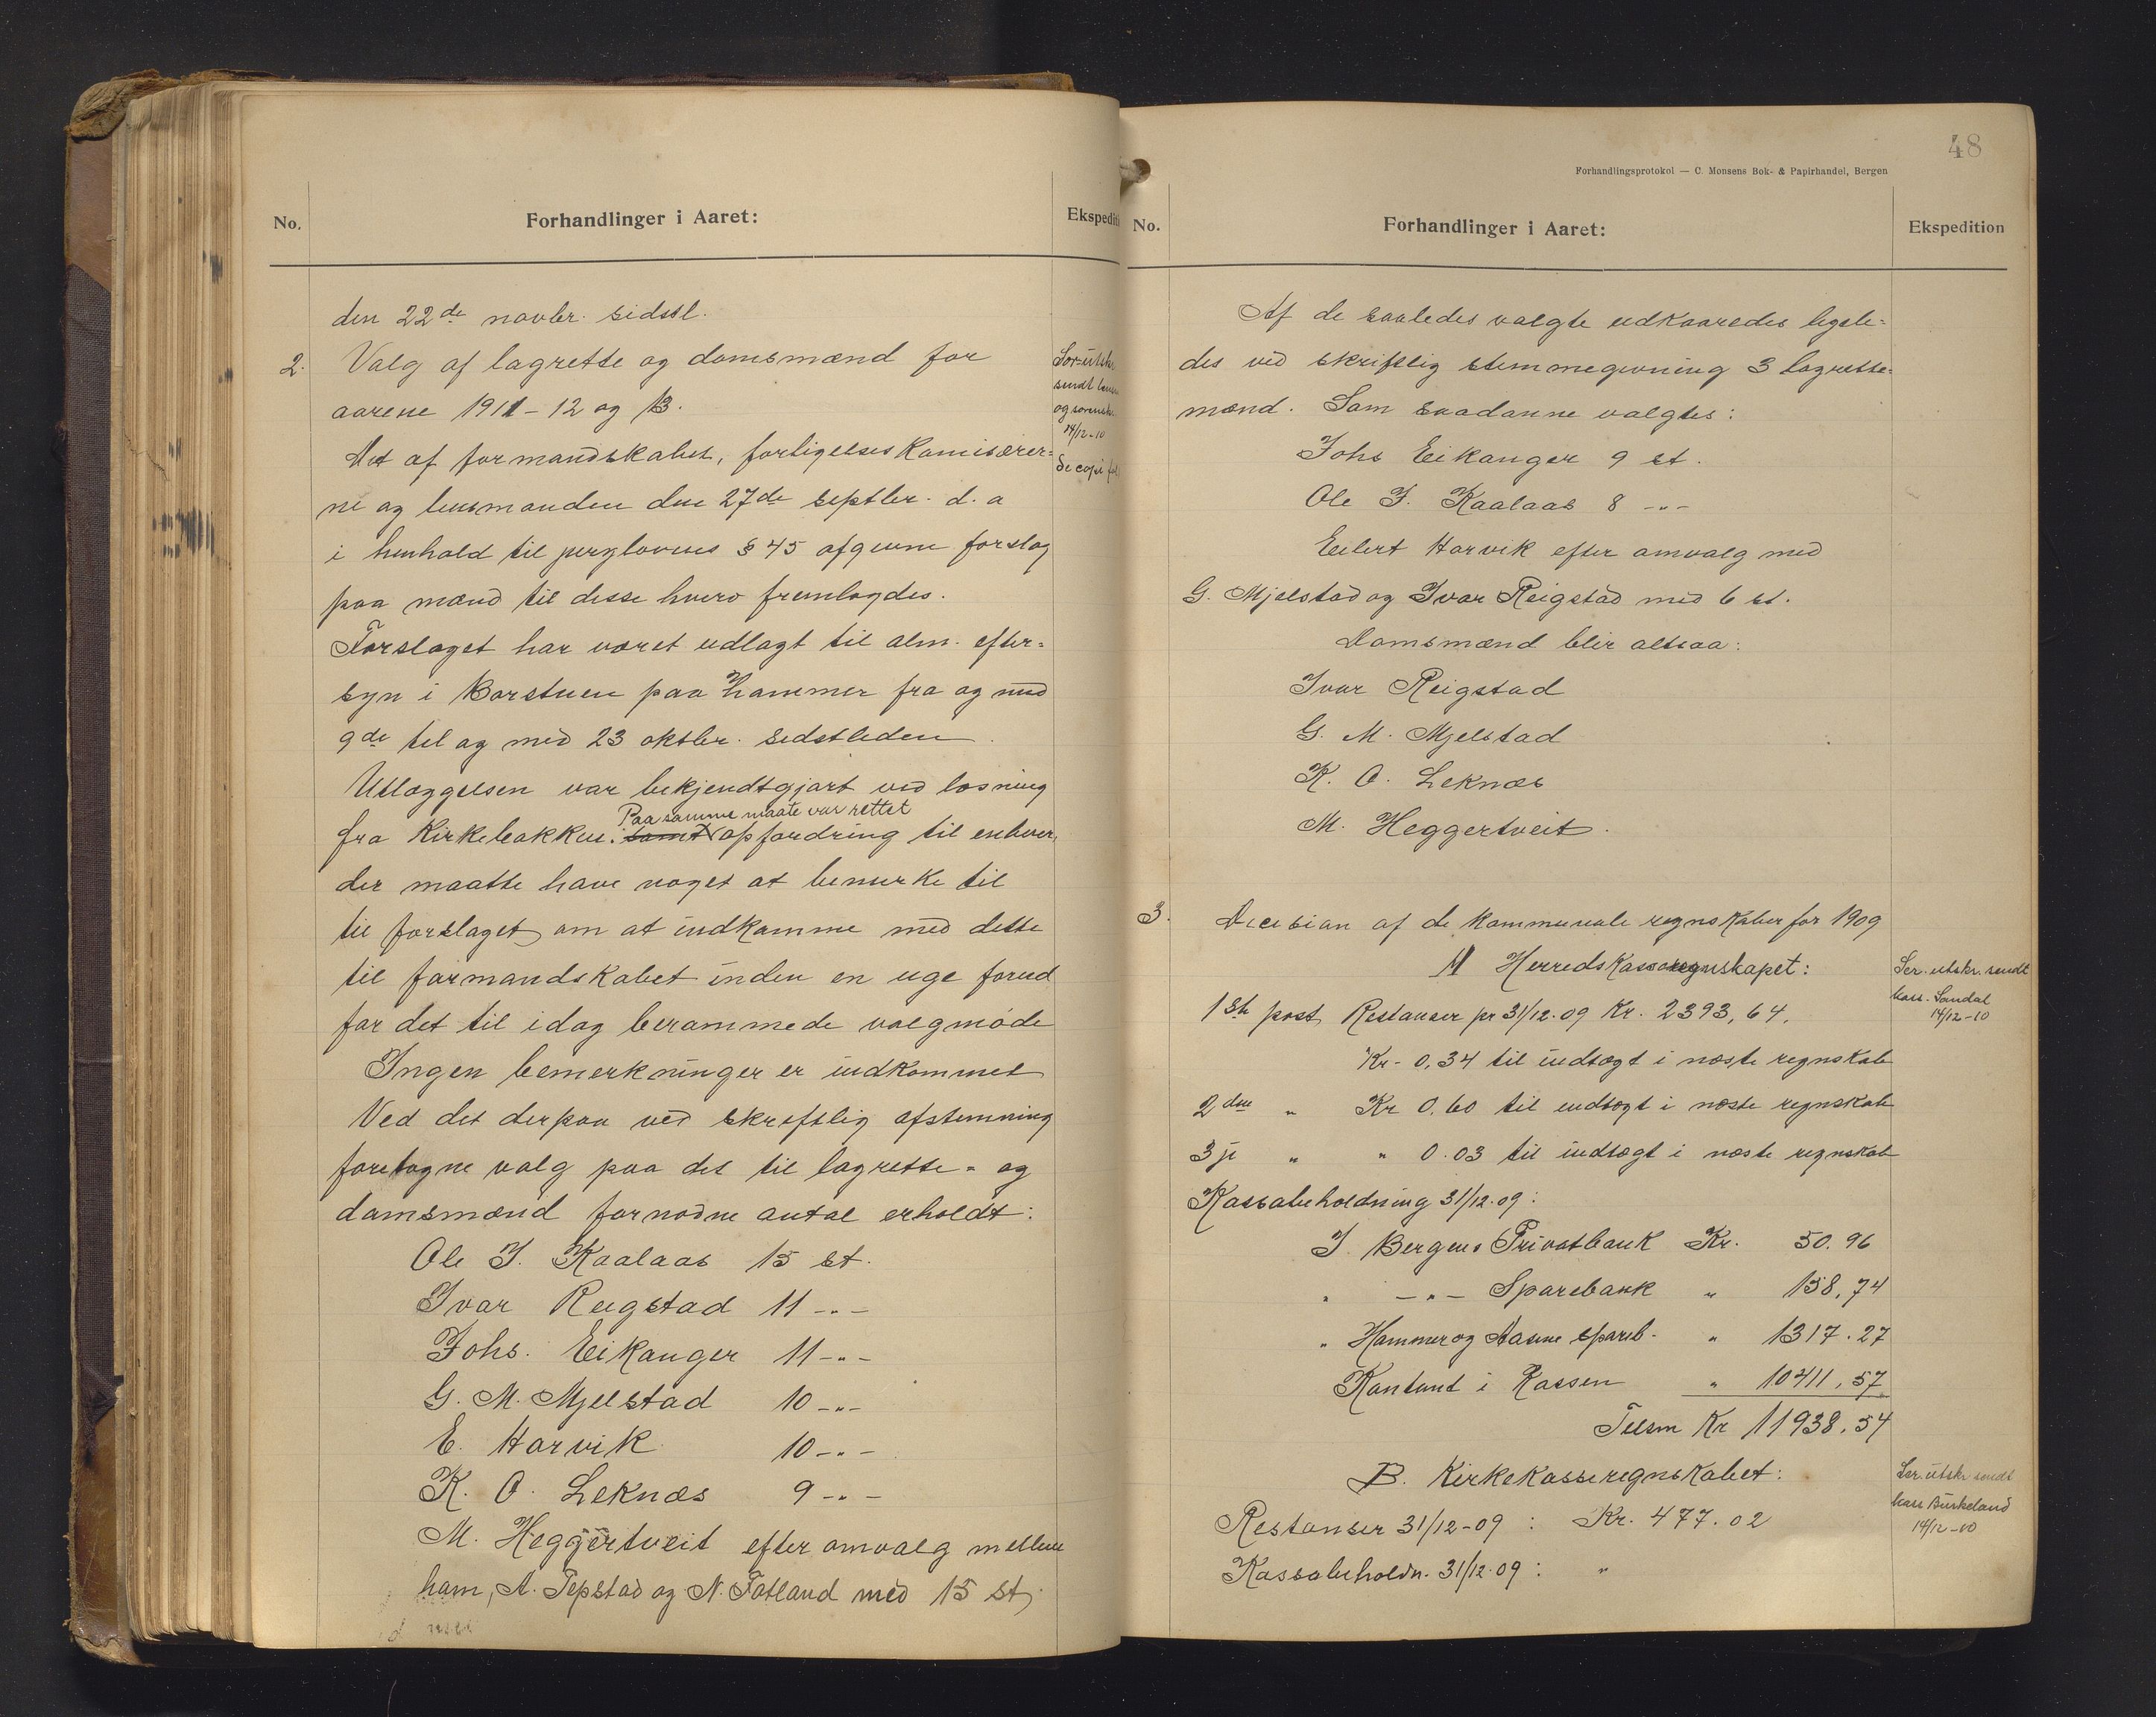 No.
Forhandlinger i Aaret:
Ekspediti
den 22de novbr. sidstl.
2.
Valg af lagrette og domsmænd for
aarene 1911-12 og 13.
Det af formandskabet, forligelseskomisærer=
ne og lensmanden den 27de septbr. d. a
i henhold til jurylovens § 45 afgivne forslag
paa mænd til disse hverv fremlagdes.
Forslaget har været udlagt til alm. efter=
syn i Borstuen paa Hammer fra og med
9de til og med 23 oktbr. sidstleden.
Utlæggelsen var bekjendtgjort ved læsning
Paa samme maate var rettet
fra Kirkebakken. samt opfordring til enhver,
der maatte have noget at bemerke til
til forslaget, om at indkomme med dette
til formandskabet inden en uge forud
for det til idag berammede valgmöde
Ingen bemerkninger er indkommet
Ved det derpaa ved skriftlig afstemning
foretagne valg paa det til lagrette- og
domsmænd fornødne antal erholdt:
Ole J. Kaalaas 15 st.
Ivar Reigstad 11 -"-
Johs. Eikanger 11 -"-
G. M. Mjelstad 10 -"-
E. Horvik 10 -"-
K. O. Leknæs 9 -"-
M. Heggertveit efter omvalg mellem
ham, A. Tepstad og N. Fotland med 15 st.
Sær-utskr.
sendt lensm
og sorensk.
14/12-10
48
Forhandlingsprotokol — C. Monsens Bok- & Papirhandel, Bergen
No.
Forhandlinger i Aaret:
Ekspedition
Af de saaledes valgte udkaaredes ligele=
des ved skriftlig stemmegivning 3 Lagrette=
mænd. Som saadanne valgtes:
Johs Eikanger 9 st.
Ole J. Kaalaas 8 -"-
Eilert Horvik efter omvalg med
G. Mjelstad og Ivar Reigstad med 6 st.
Domsmænd blir altsaa:
Ivar Reigstad
G. M. Mjelstad
K. O. Leknæs
M. Heggertveit.
3.
Decision af de kommunale regnskaber for 1909
A Herredskasseregnskapet:
1ste post, Restanser pr 31/12-09 Kr. 2393,64.
Kr- 0,34 til indtægt i næste regnskab
2den " Kr 0.60 til indtægt i næste regnskab
3je " " 0.03 til indtægt i næste regnskab
Kassabeholdning 31/12-09:
I Bergens Privatbank Kr. 50.96
" -"- Sparebank " 158,74
" Hammer og Aasene spareb. " 1317.27
Kontant i Kassen " 10411,57
Tilsm Kr 11938.54
B. Kirkekasseregnskabet:
Restanser 31/12-09: Kr. 477.02
Kassabeholdn. 31/12-09: "
Sær. utskr. sendt
kass. Sandal
14/12-10
Sær. utskr sendt
kass Birkeland
14/12-10